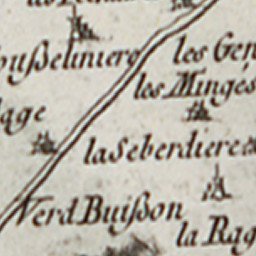 oußeliniere
les Gen
les Mingés
lage
la Seberdiere
Verd Buißon
la Rag